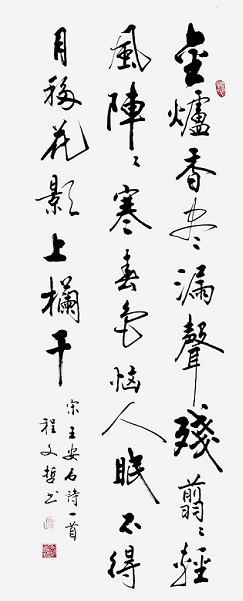 金爐香尽漏聲殘翦〻輕
風陣〻寒春色恼人眠不得
月移花影上欄干
宋王安石詩一首
程文哲书